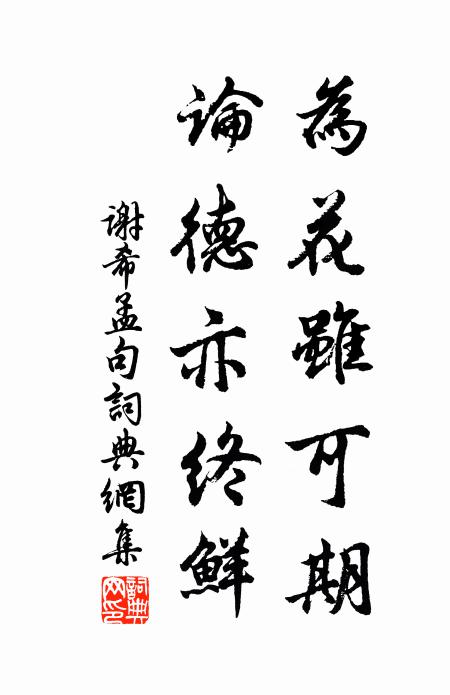 為花雖可期
論德亦終鮮
謝希孟句詞典網集
詞典網印